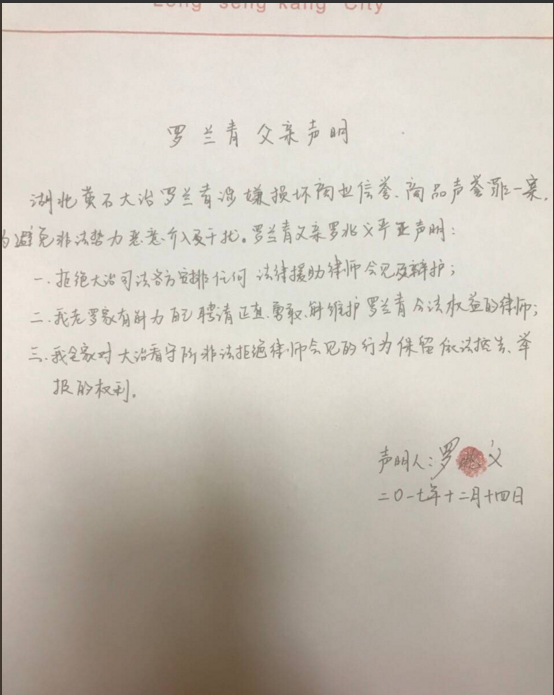 Long song kang City
罗兰青父亲声明
湖北黄石大冶罗兰青涉嫌损坏商业信誉、商品声誉罪一案,
为避免非法势力恶意介入及干扰。罗兰青父亲罗兆义严正声明:
一.拒绝大冶司法当方安排任何法律援助律师会见及辩护;
二.我老罗家有能力自己聘请正直、勇敢、能维护罗兰青合法权益的律师;
三.我全家对大冶看守所非法拒绝律师会见的行为保留依法控告、举
报的权利。
声明人:罗兆义
二〇一七年十二月十四日